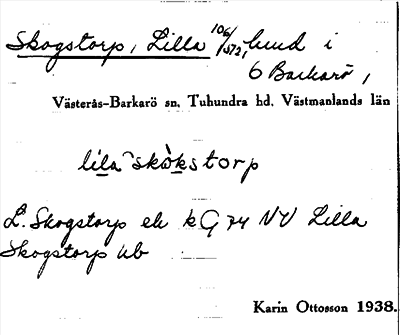 Skogstorp, Lilla 106/372, hmd i
6 Barkarö,
Västerås-Barkarö sn. Tuhundra hd. Västmanlands län
lila skòkstorp
L. Skogstorp ek kG 74 NV Lilla
Skogstorp ub
Karin Ottosson 1938.